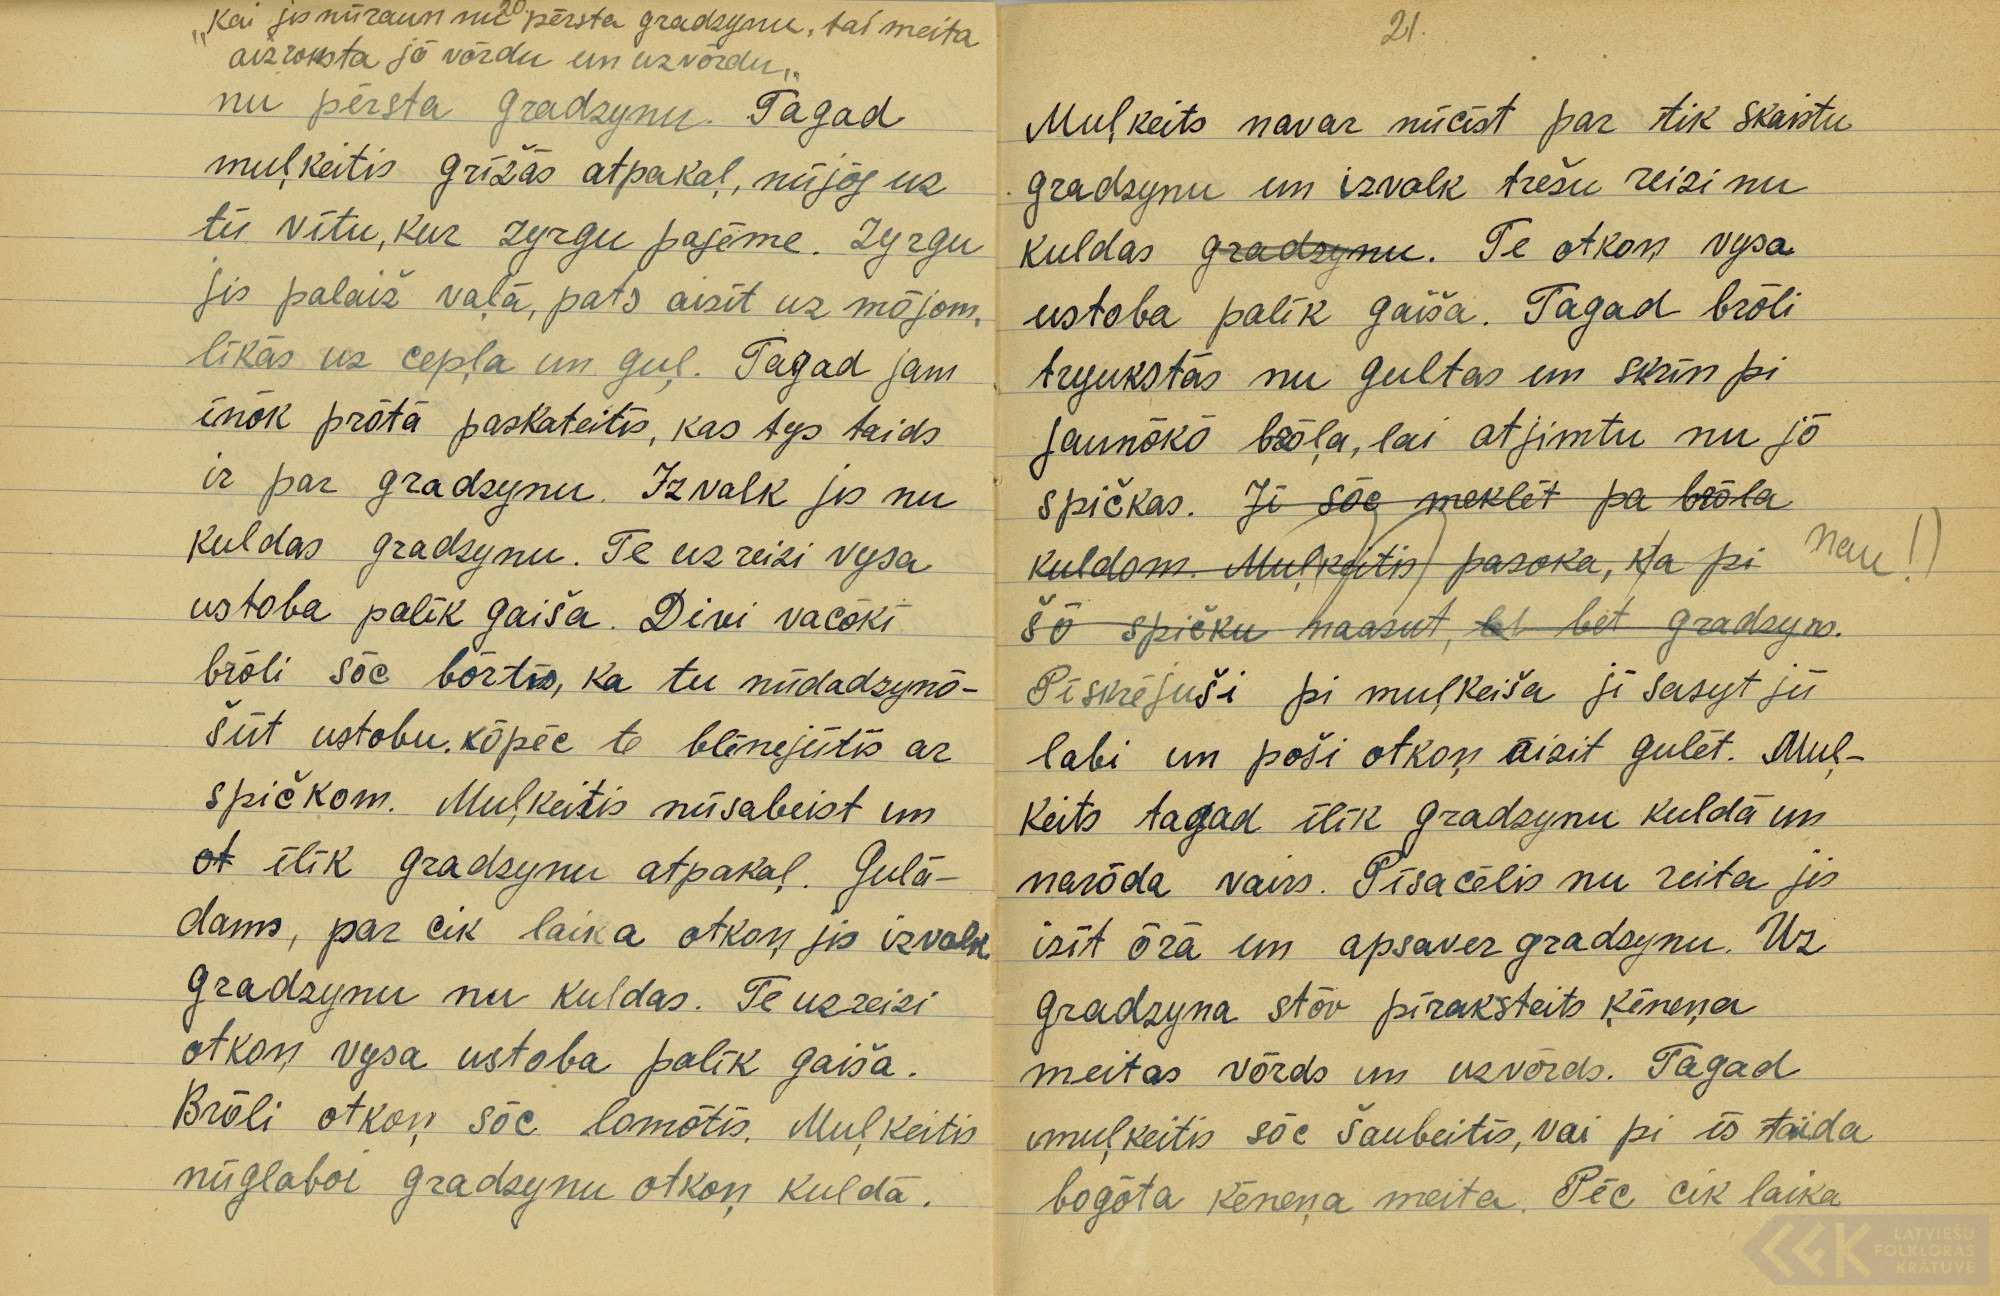 20.
„Kai jis nūraun nu pērsta gradzynu, tai meita
aizroksta jō vōrdu un uzvōrdu„
nu pērsta gradzynu. Tagad
muļkeitis grīžās atpakaļ, nūjōj uz
tū vītu, kur zyrgu pajēme. Zyrgu
jis palaiž vaļā, pats aizīt uz mōjom,
līkās uz cepļa un guļ. Tagad jam
īnōk prōtā paskateitīs, kas tys taids
ir par gradzynu. Izvalk jis nu
kuldas gradzynu. Tē uzreizi vysa
ustoba palīk gaiša. Divi vacōki
brōli sōc bōrtīs, ka tu nūdadzynō-
šūt ustobu. kōpēc te blēnejūtīs ar
spičkom. Muļkeitis nūsabeist un
ot īlīk gradzynu atpakaļ. Gulā-
dams, par cik laika otkoņ jis izvalk
gradzynu nu kuldas. Tē uzreizi
otkoņ vysa ustoba palīk gaiša.
Brōli otkoņ sōc lomōtīs. Muļkeitis
nūglaboi gradzynu otkoņ kuldā.
21.
Muļkeits navar nūcīst par tik skaistu
gradzynu un izvalk trešu reizi nu
kuldas gradzynu. Te otkoņ vysa
ustoba palīk gaiša. Tagad brōli
tryukstās nu gultas un skrīn pi
jaunōkō brōļa, lai atjimtu nu jō
spičkas. Jī sōc meklēt pa brōla
kuldom. Muļkeitis pasoka, ka pi
nau!)
šō spičku naasut, bet gradzyns.
Pīskrējuši pi muļkeiša jī sasyt jū
labi un poši otkoņ aizit gulēt. Muļ-
keits tagad īlīk gradzynu kuldā un
narōda vairs. Pīsacēlis nu reita jis
izīt ōrā un apsaver gradzynu. Uz
gradzyna stōv pīraksteits ķēneņa
meitas vōrds un uzvōrds. Tagad
muļkeitis sōc šaubeitīs, vai pi īs taida
bogōta ķēneņa meita. Pēc cik laika
LATVIEŠU
FOLKLORAS
KRĀTUVE